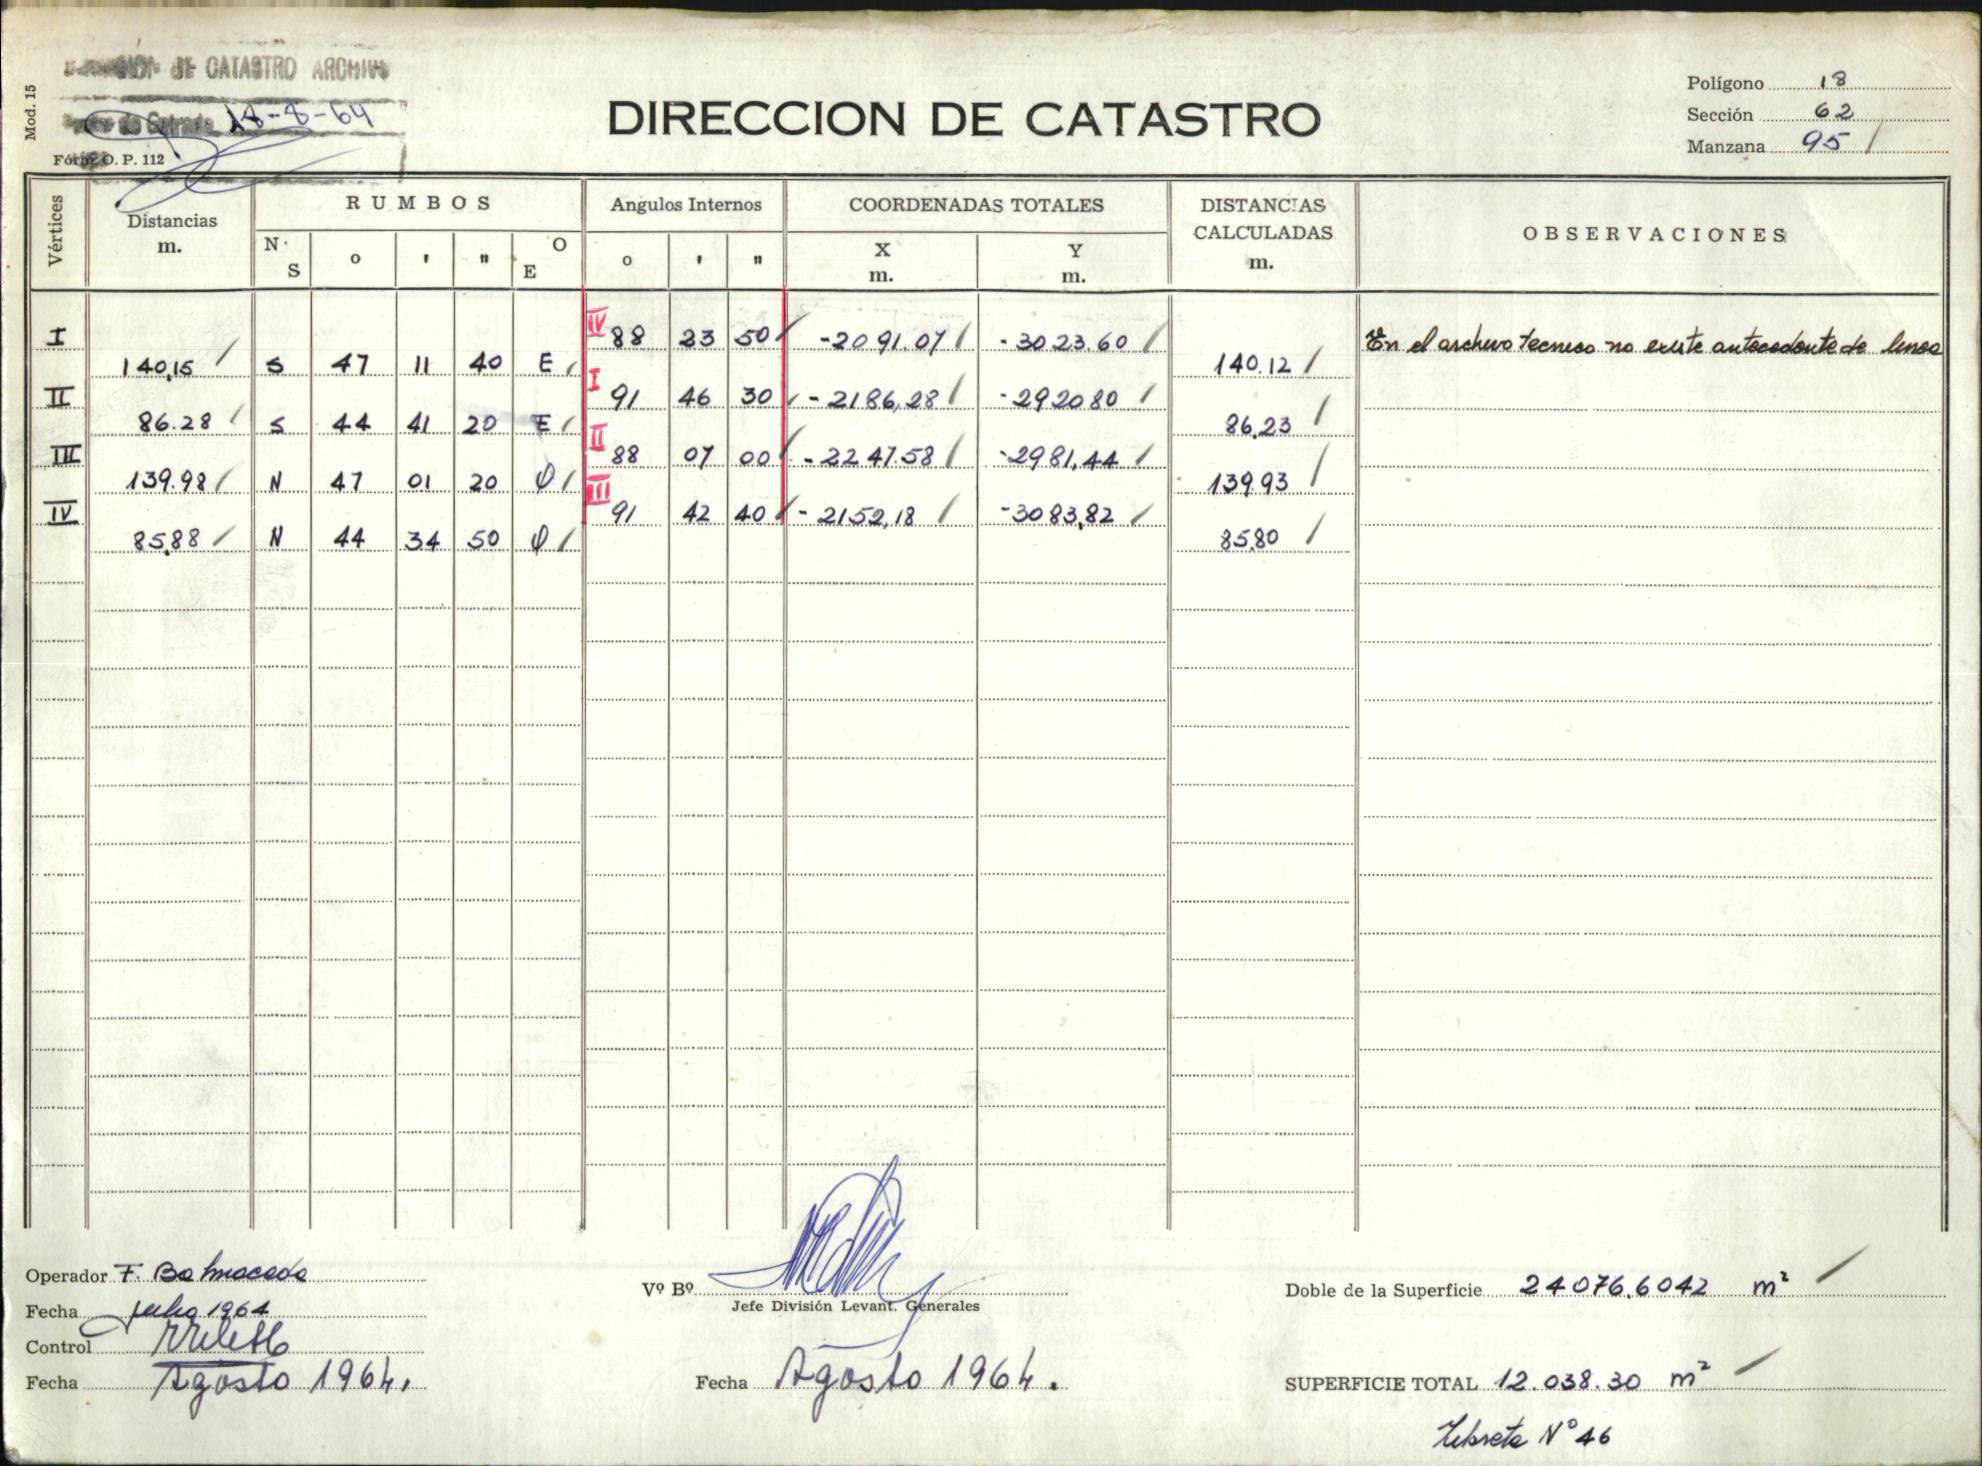 DE CATASTRO ARCHIVO
Mod. 15
de Entrada 18-8-64
Fórm. O. P. 112
DIRECCION DE CATASTRO
Polígono 18
Sección 62
Manzana 95
Vértices
Distancias m.
RUMBOS
N. S ° ' " O E
Angulos Internos
° ' "
COORDENADAS TOTALES
X m. Y m.
DISTANCIAS CALCULADAS m.
OBSERVACIONES
I IV 88 23 50 -2091.07 -3023.60 En el archivo tecnico no existe antecedente de linea
140,15 S 47 11 40 E 140.12
II I 91 46 30 -2186,28 -292080
86.28 S 44 41 20 E 86,23
III II 88 07 00 -2247.58 -2981,44
139.98 N 47 01 20 O 139.93
IV III 91 42 40 -2152,18 -3083,82
85,88 N 44 34 50 O 85,80
Operador F. Balmaceda
Fecha Julio 1964
Control
Fecha Agosto 1964.
Vº Bº
Jefe División Levant. Generales
Fecha Agosto 1964.
Doble de la Superficie 24076,6042 m²
SUPERFICIE TOTAL 12.038.30 m²
Libreta Nº 46